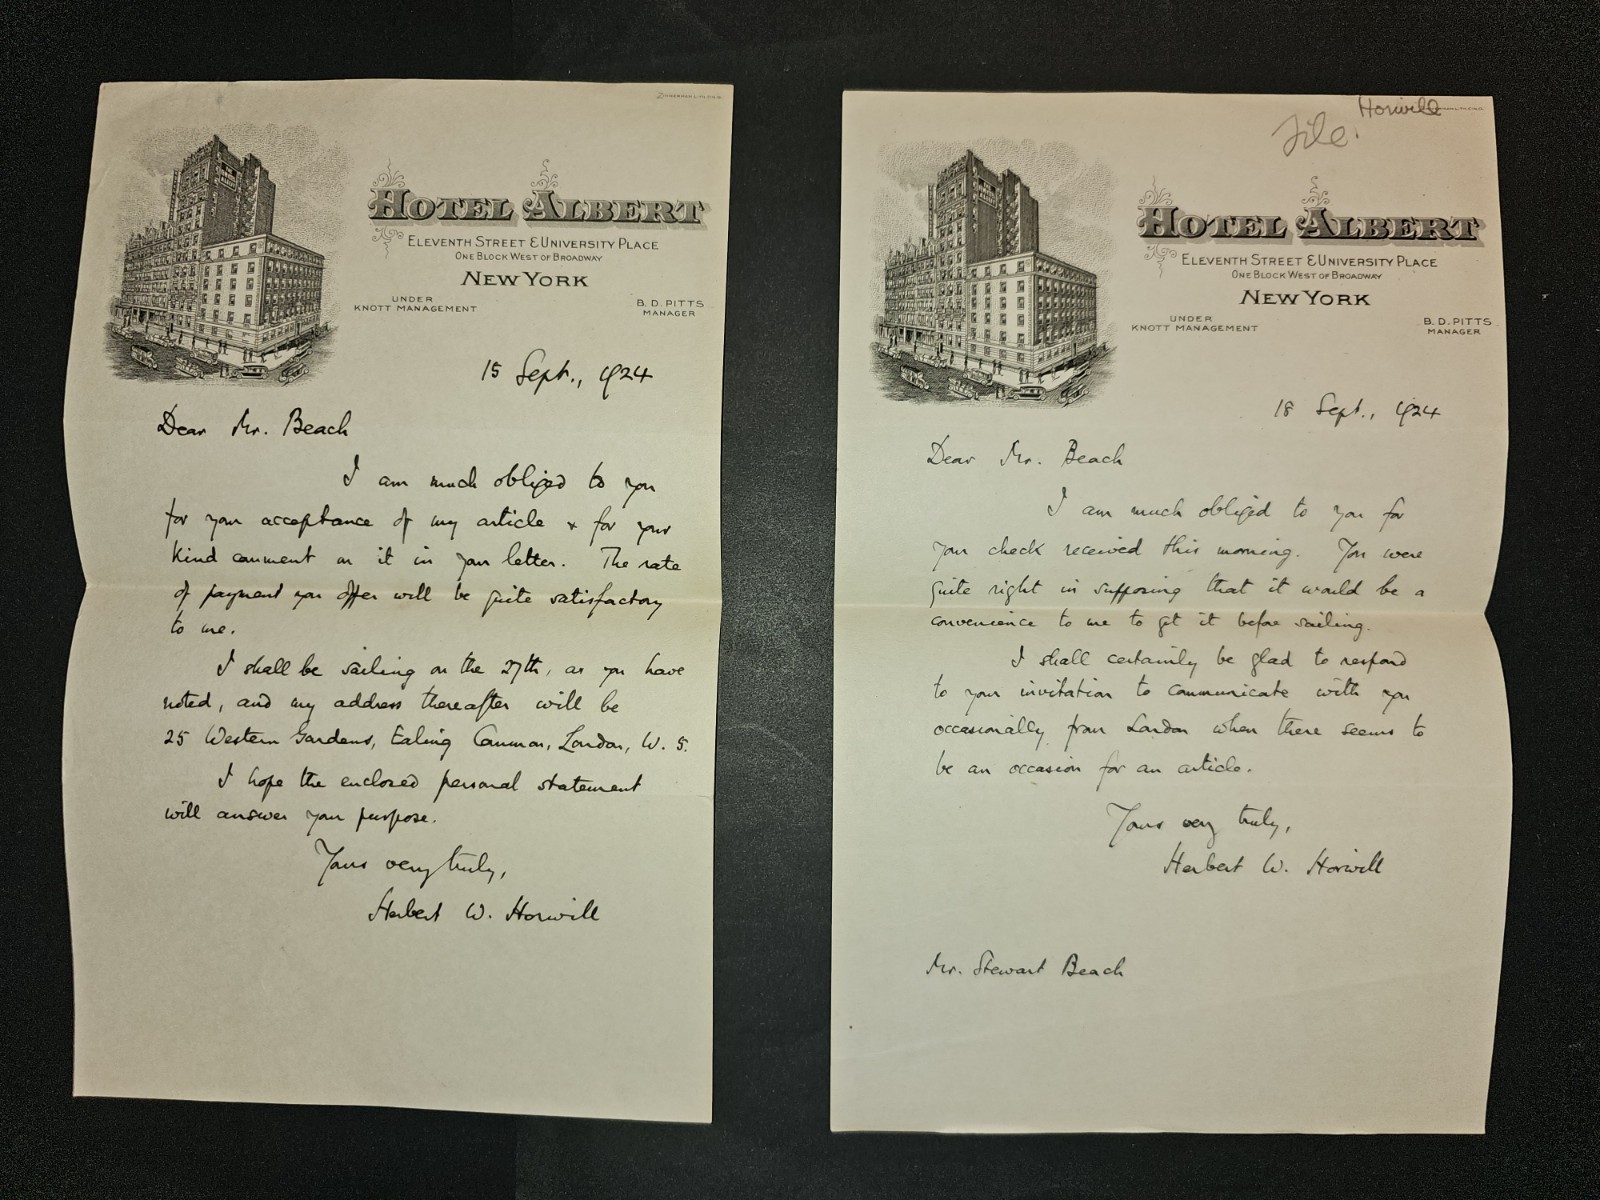 HOTEL ALBERT
ELEVENTH STREET & UNIVERSITY PLACE
ONE BLOCK WEST OF BROADWAY
NEW YORK
UNDER
KNOTT MANAGEMENT
B. D. PITTS
MANAGER
15 Sept., 1924
Dear Mr. Beach
I am much obliged to you
for your acceptance of my article & for your
kind comment on it in your letter. The rate
of payment you offer will be quite satisfactory
to me.
I shall be sailing on the 27th, as you have
noted, and my address thereafter will be
25 Western Gardens, Ealing Common, London, W. 5.
I hope the enclosed personal statement
will answer your purpose.
Yours very truly,
Herbert W. Horwill
Horwill
File.
HOTEL ALBERT
ELEVENTH STREET & UNIVERSITY PLACE
ONE BLOCK WEST OF BROADWAY
NEW YORK
UNDER
KNOTT MANAGEMENT
B. D. PITTS
MANAGER
18 Sept., 1924
Dear Mr. Beach
I am much obliged to you for
your check received this morning. You were
quite right in supposing that it would be a
convenience to me to get it before sailing.
I shall certainly be glad to respond
to your invitation to communicate with you
occasionally from London when there seems to
be an occasion for an article.
Yours very truly,
Herbert W. Horwill
Mr. Stewart Beach